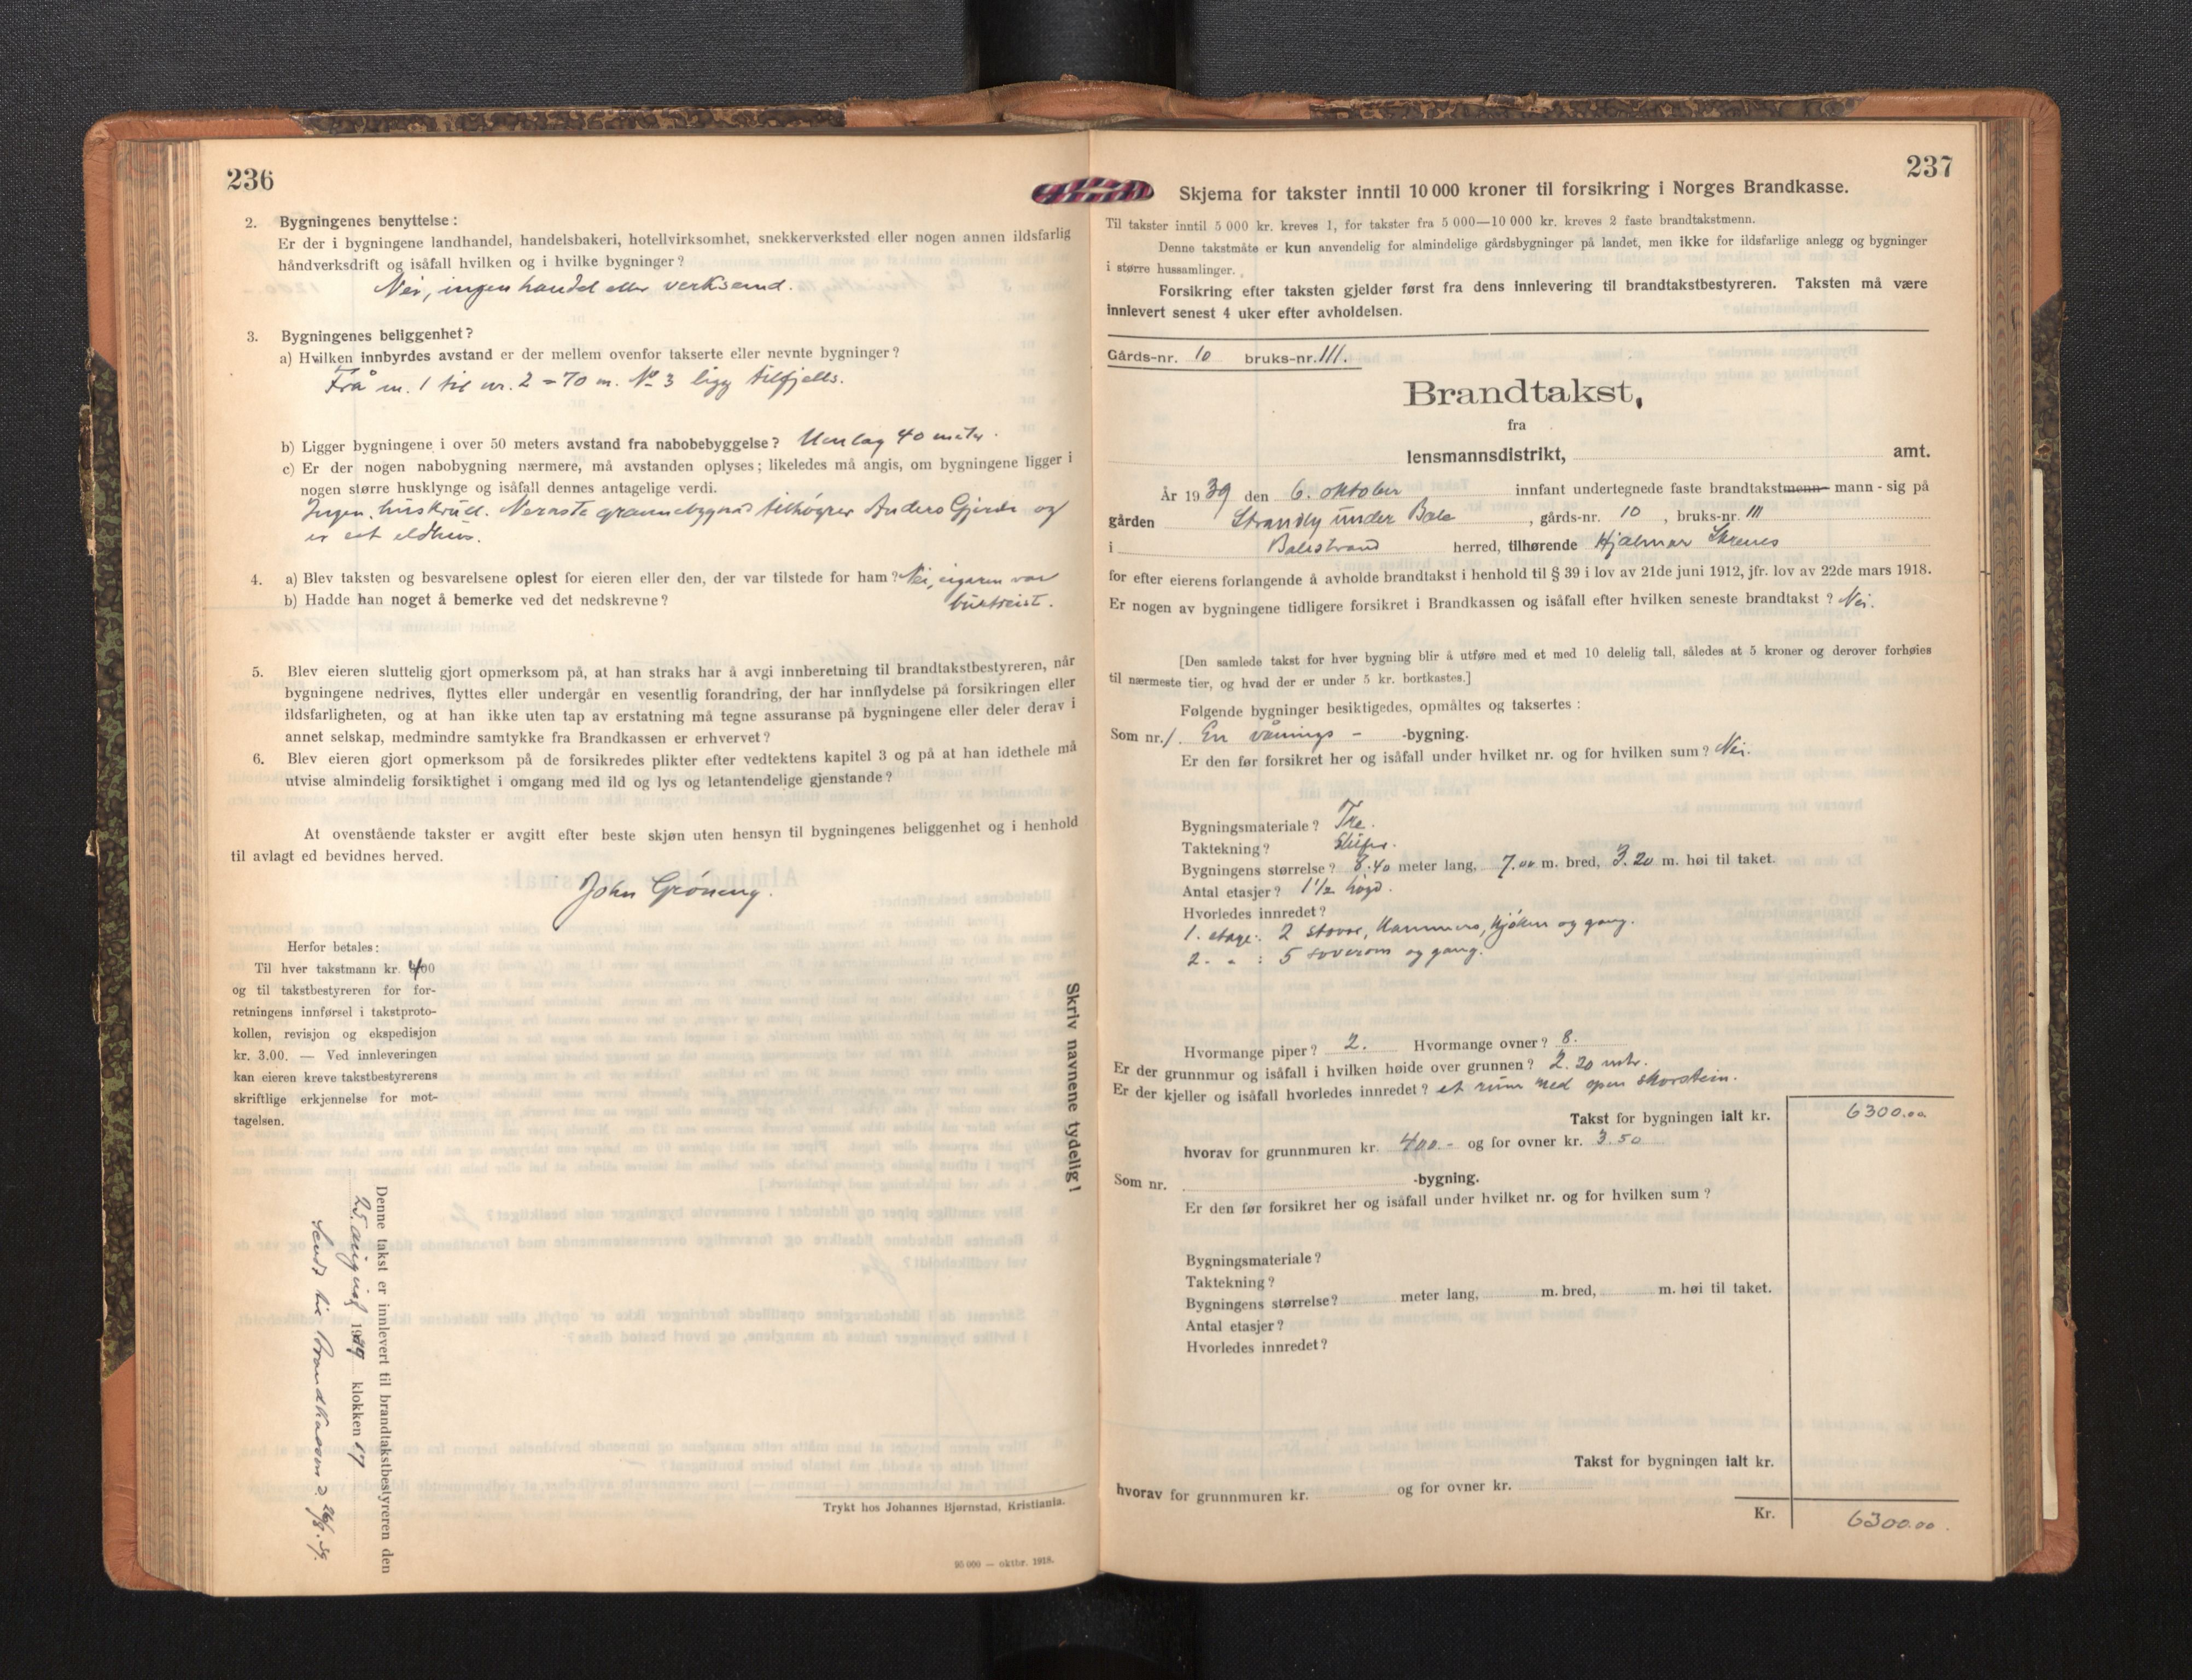 236
2. Bygningenes benyttelse:
Er der i bygningene landhandel, handelsbakeri, hotellvirksomhet, snekkerverksted eller nogen annen ildsfarlig
håndverksdrift og isåfall hvilken og i hvilke bygninger?
Nei, ingen handel eller verksemd.
3. Bygningenes beliggenhet?
a) Hvilken innbyrdes avstand er der mellem ovenfor takserte eller nevnte bygninger?
Frå nr. 1 til nr. 2 = 70 m. No 3 ligg tilfjells.
b) Ligger bygningene i over 50 meters avstand fra nabobebyggelse? Umlag 40 meter.
c) Er der nogen nabobygning nærmere, må avstanden oplyses; likeledes må angis, om bygningene ligger i
nogen større husklynge og isåfall dennes antagelige verdi.
Ingen huskrull. Neraste grannebygnad tilhøyrer Anders Gjerde og
er eit eldhus.
4. a) Blev taksten og besvarelsene oplest for eieren eller den, der var tilstede for ham? Nei, eigaren var
b) Hadde han noget å bemerke ved det nedskrevne? burtreist.
5. Blev eieren sluttelig gjort opmerksom på, at han straks har å avgi innberetning til brandtakstbestyreren, når
bygningene nedrives, flyttes eller undergår en vesentlig forandring, der har innflydelse på forsikringen eller
ildsfarligheten, og at han ikke uten tap av erstatning må tegne assuranse på bygningene eller deler derav i
annet selskap, medmindre samtykke fra Brandkassen er erhvervet?
6. Blev eieren gjort opmerksom på de forsikredes plikter efter vedtektens kapitel 3 og på at han idethele må
utvise almindelig forsiktighet i omgang med ild og lys og letantendelige gjenstande?
At ovenstående takster er avgitt efter beste skjøn uten hensyn til bygningenes beliggenhet og i henhold
til avlagt ed bevidnes herved.
John Grøneng.
Herfor betales:
Til hver takstmann kr. 400
og til takstbestyreren for for-
retningens innførsel i takstproto-
kollen, revisjon og ekspedisjon
kr. 3.00. — Ved innleveringen
kan eieren kreve takstbestyrerens
skriftlige erkjennelse for mot-
tagelsen.
Skriv navnene tydelig!
Denne takst er innlevert til brandtakstbestyreren den
25. august 1939 klokken 17
Sendt til Brandkassen d. 26/8. 39.
Trykt hos Johannes Bjørnstad, Kristiania.
95 000 — oktbr. 1918.
237
Skjema for takster inntil 10 000 kroner til forsikring i Norges Brandkasse.
Til takster inntil 5 000 kr. kreves 1, for takster fra 5 000—10 000 kr. kreves 2 faste brandtakstmenn.
Denne takstmåte er kun anvendelig for almindelige gårdsbygninger på landet, men ikke for ildsfarlige anlegg og bygninger
i større hussamlinger.
Forsikring efter taksten gjelder først fra dens innlevering til brandtakstbestyreren. Taksten må være
innlevert senest 4 uker efter avholdelsen.
Gårds-nr. 10 bruks-nr. 111.
Brandtakst,
fra
lensmannsdistrikt, amt.
År 1939 den 6. oktober innfant undertegnede faste brandtakstmenn - mann - sig på
gården Strandly under Bale, gårds-nr. 10, bruks-nr. 111
i Balestrand herred, tilhørende Hjalmar Skrenes
for efter eierens forlangende å avholde brandtakst i henhold til § 39 i lov av 21de juni 1912, jfr. lov av 22de mars 1918.
Er nogen av bygningene tidligere forsikret i Brandkassen og isåfall efter hvilken seneste brandtakst? Nei.
[Den samlede takst for hver bygning blir å utføre med et med 10 delelig tall, således at 5 kroner og derover forhøies
til nærmeste tier, og hvad der er under 5 kr. bortkastes.]
Følgende bygninger besiktigedes, opmåltes og taksertes:
Som nr. 1. En vånings - -bygning.
Er den før forsikret her og isåfall under hvilket nr. og for hvilken sum? Nei.
Bygningsmateriale? Tre.
Taktekning? Skifer.
Bygningens størrelse? 8.40 meter lang, 7.00 m. bred, 3.20 m. høi til taket.
Antal etasjer? 1 1/2 høgd.
Hvorledes innredet?
1. etage: 2 stovor, kammers, kjøken og gang.
2. " : 5 soverom og gang.
Hvormange piper? 2. Hvormange ovner? 8.
Er der grunnmur og isåfall i hvilken høide over grunnen? 2.20 mtr.
Er der kjeller og isåfall hvorledes innredet? et rum med open skorstein.
Takst for bygningen ialt kr. 6300.00
hvorav for grunnmuren kr. 400.- og for ovner kr. 3.50
Som nr. -bygning.
Er den før forsikret her og isåfall under hvilket nr. og for hvilken sum?
Bygningsmateriale?
Taktekning?
Bygningens størrelse? meter lang, m. bred, m. høi til taket.
Antal etasjer?
Hvorledes innredet?
Takst for bygningen ialt kr.
hvorav for grunnmuren kr. og for ovner kr.
Kr. 6300.00.